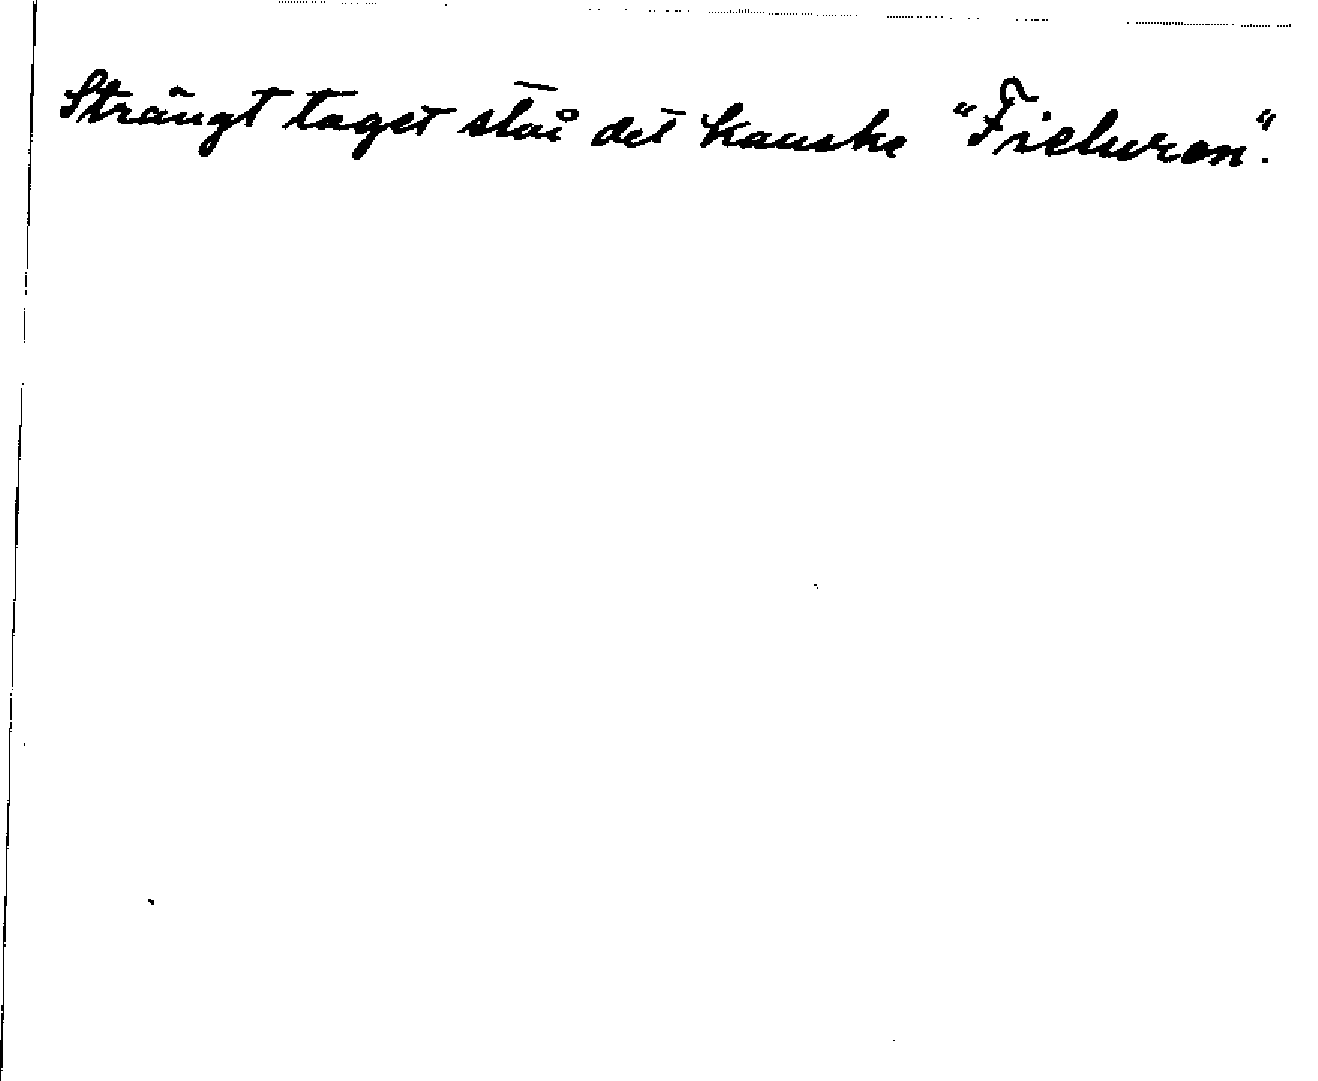 Strängt taget står det kanske "Fieluron".